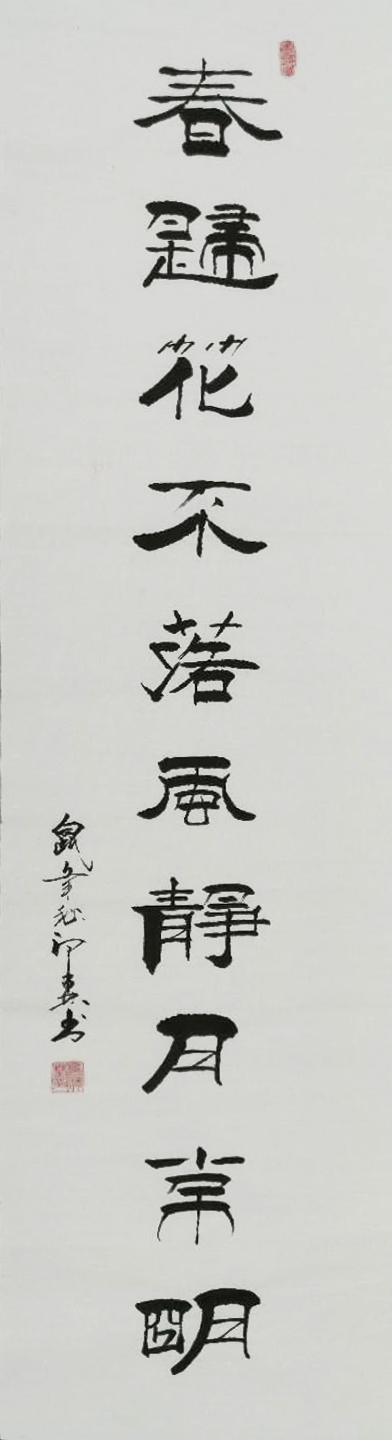 春歸花不落風靜月常明
鼠年秋印其書